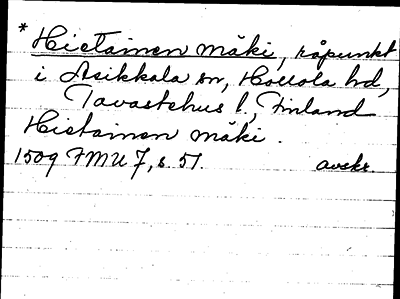 * Hietainen mäki, råpunkt
i Asikkala sn, Hollola hd,
Tavastehus l., Finland
Hietainen mäki.
1509 FMU 7, s. 51. avskr.